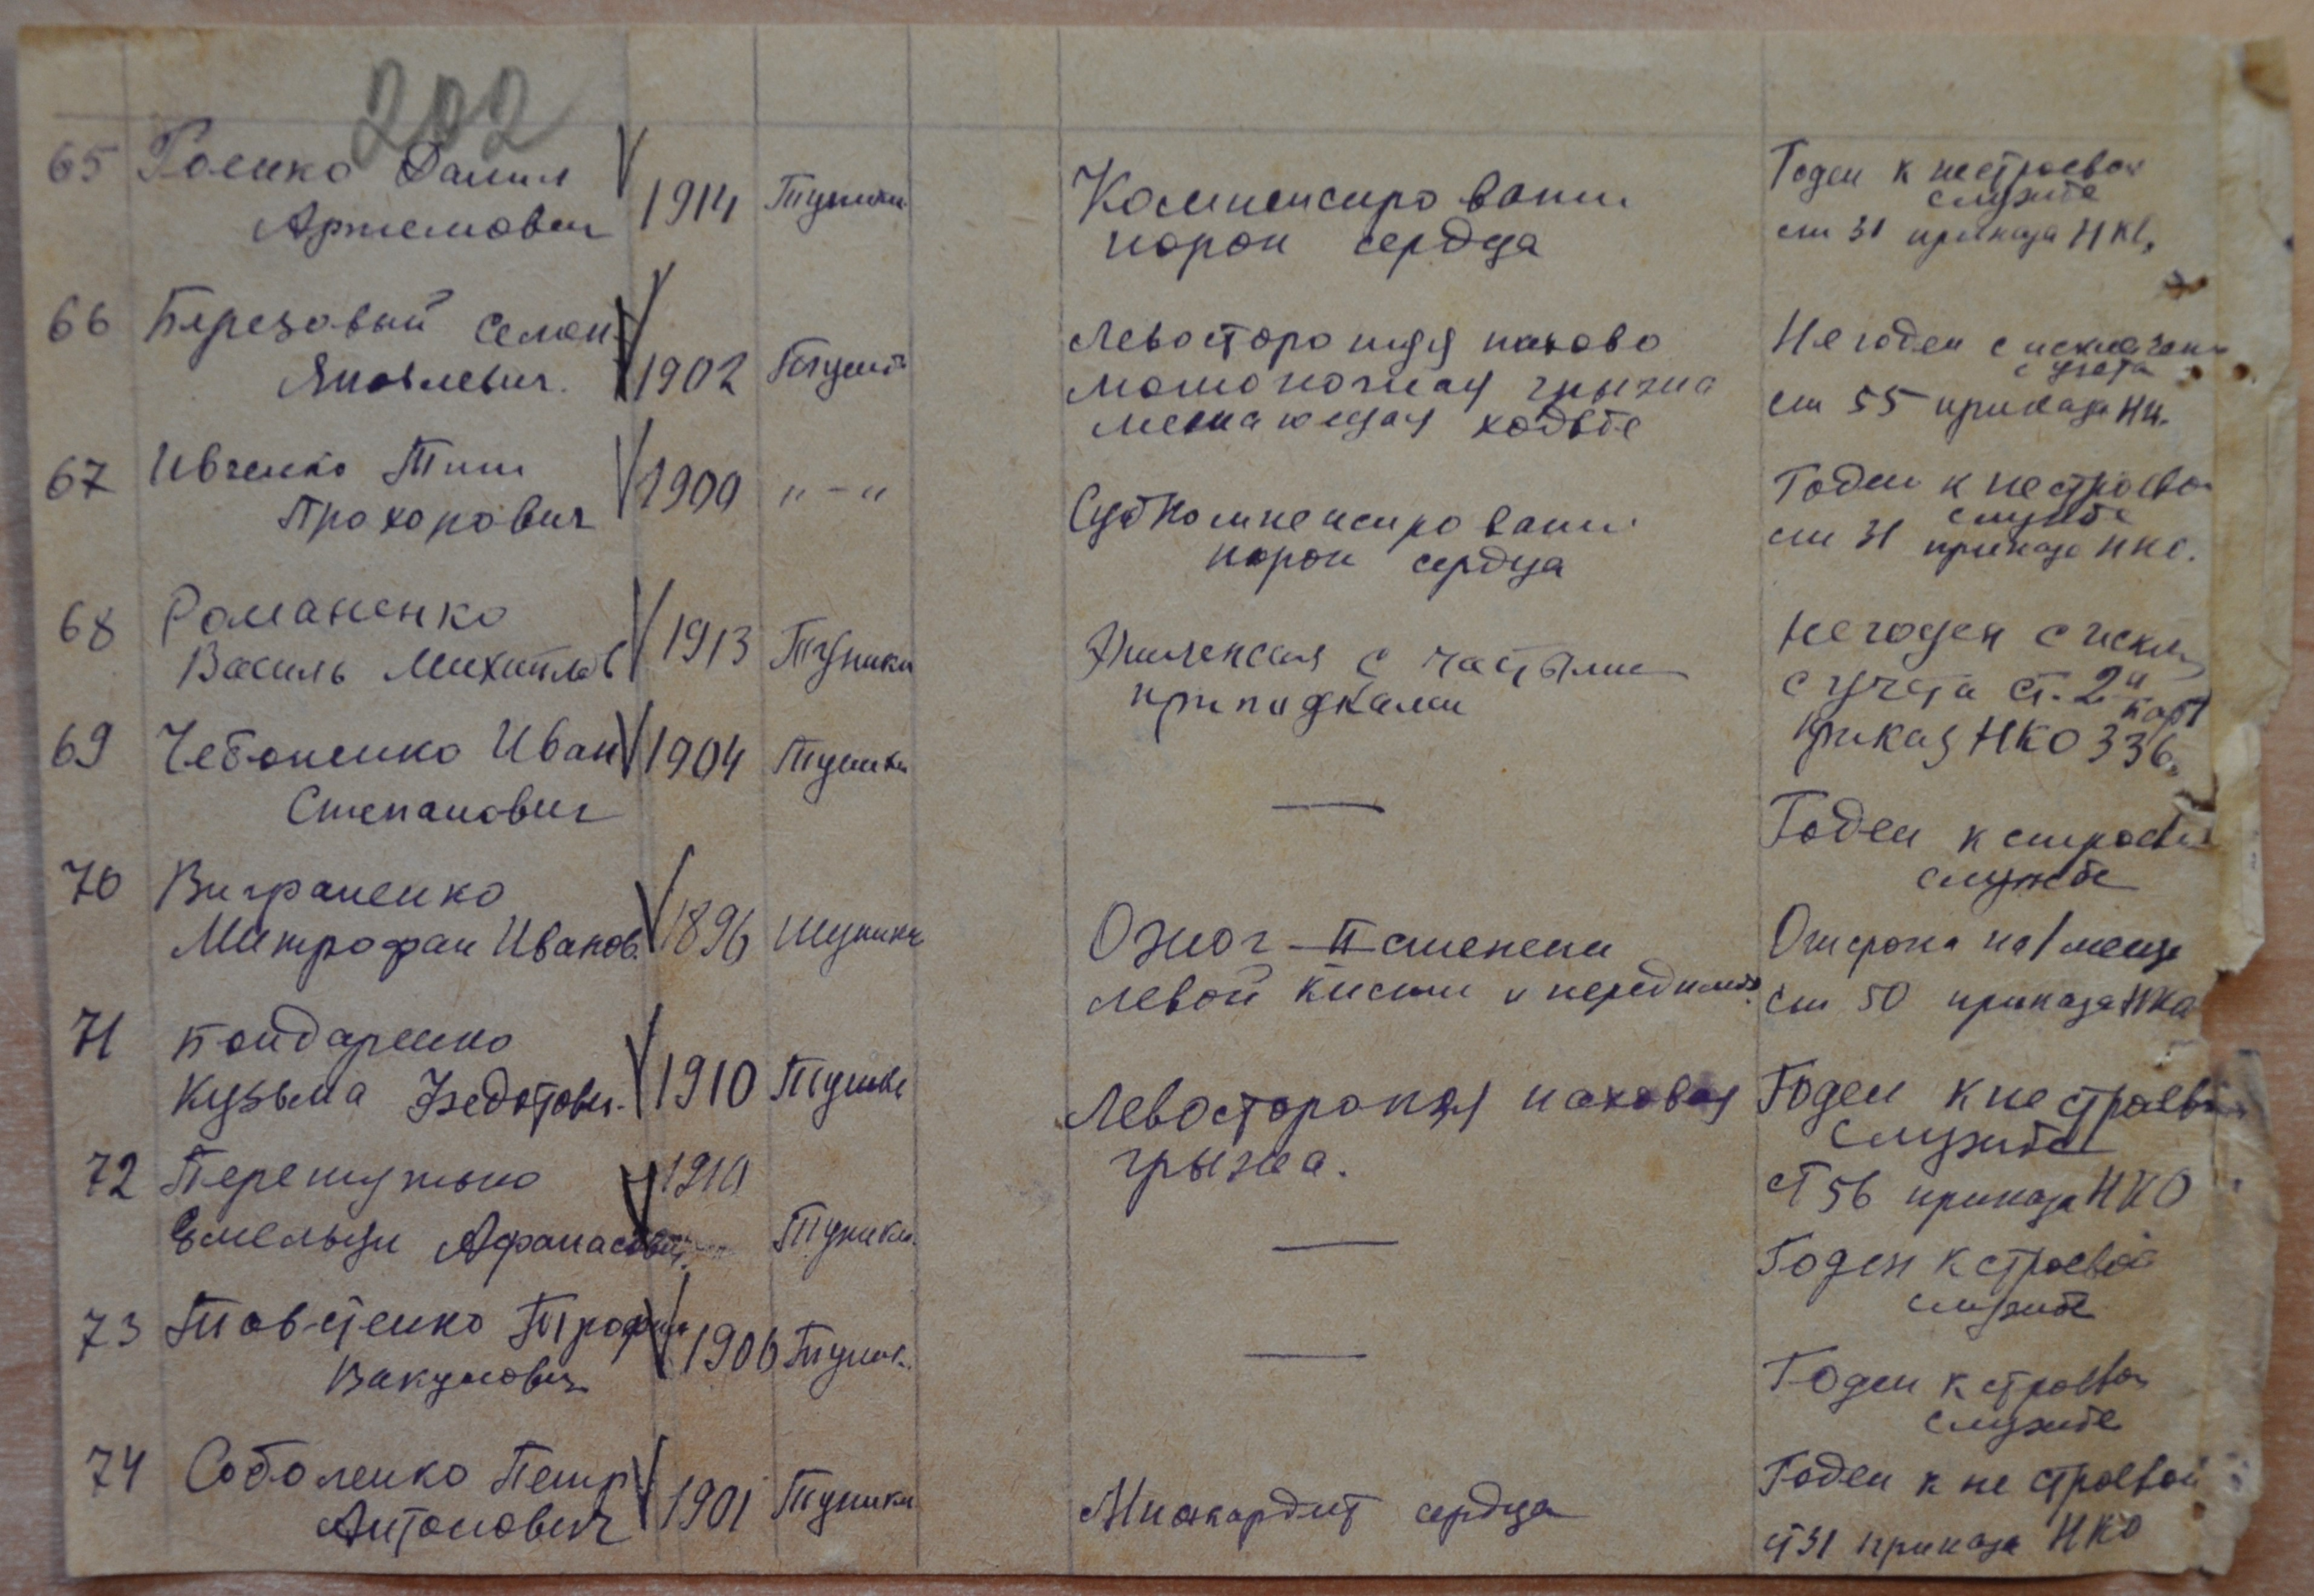 202
65 Роенко Данил 1914 Тупички Компенсирован. Годен к нестроевой
Артемович порок сердца службе
ст 31 приказа НКО
66 Березовый Семен 1902 Левостороняя пахово Не годен с исключени
Яковлевич мошоночная грыжа с учета
мешающая ходьбе ст 55 приказа НК.
67 Ивченко Тит 1900 "-" Субкомпенсирован. Годен к нестроевой
Прохорович порок сердца службе
ст 31 приказа НКО.
68 Романенко 1913 Тупики Эпилепсия с частыми Не годен с искл
Василь Михайлов припадками с учета ст. 2
приказ НКО 336.
69 Чебоненко Иван 1904 Тупики — Годен к строевой
Степанович службе
70 Виграненко 1896 Тупики Ожог II степени Отсрочка на 1 месяц
Митрофан Иванов. левой кисти и ст 50 приказа НКО
71 Бондаренко 1910 Тупики Левостороняя паховая Годен к нестроевой
Кузьма Федотович. грыжа. службе
ст 56 приказа НКО
72 1910 Тупики — Годен к строевой
Емельян Афанасович службе
73 Товстенко Трофим 1906 Тупики — Годен к строевой
Вакумович службе
74 Соболенко Петр 1901 Тупики Миокардит сердца Годен к не строевой
Антонович ст 31 приказа НКО